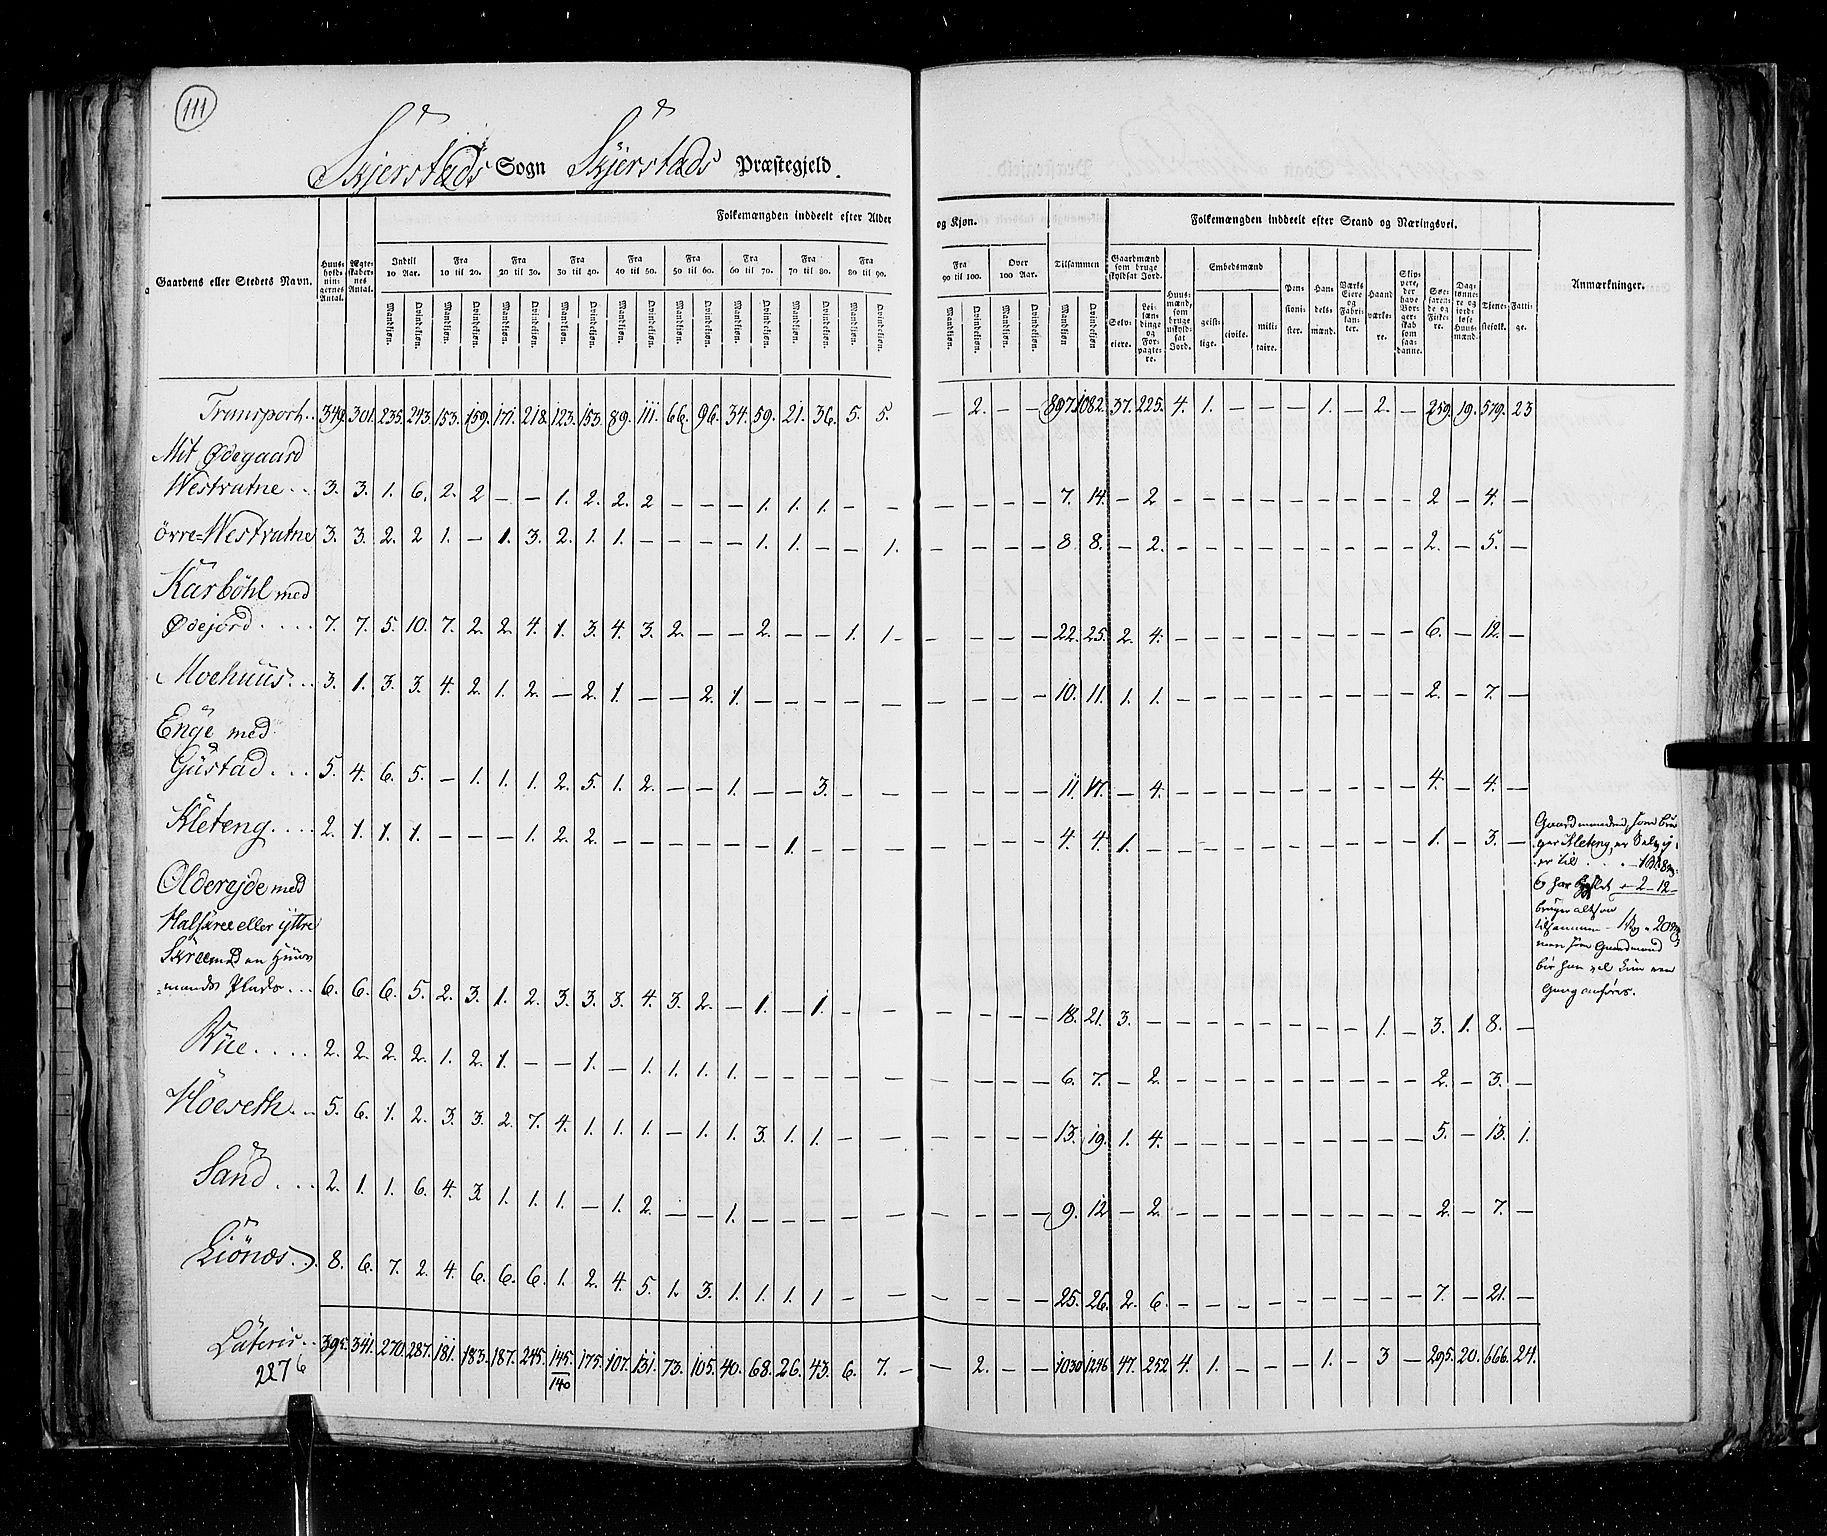 111
Skjerstads Sogn Skjerstads Præstegjeld.
Gaardens eller Stedets Navn. Huus-holdnin-gernes Antal. Ægte-skaber-nes Antal. Folkemængden inddeelt efter Alder og Kjøn. Tilsammen Folkemængden inddeelt efter Stand og Næringsvei. Anmærkninger.
Indtil 10 Aar. Fra 10 til 20. Fra 20 til 30. Fra 30 til 40. Fra 40 til 50. Fra 50 til 60. Fra 60 til 70. Fra 70 til 80. Fra 80 til 90. Fra 90 til 100. Over 100 Aar.
Mandkjøn. Qvindekjøn. Mandkjøn. Qvindekjøn. Mandkjøn. Qvindekjøn. Mandkjøn. Qvindekjøn. Mandkjøn. Qvindekjøn. Mandkjøn. Qvindekjøn. Mandkjøn. Qvindekjøn. Mandkjøn. Qvindekjøn. Mandkjøn. Qvindekjøn. Mandkjøn. Qvindekjøn. Mandkjøn. Qvindekjøn. Mandkjøn. Qvindekjøn.
Gaardmænd som bruge skyldsat Jord. Selv-eiere. Lei-lændinge og For-pagte-re. Huus-mænd, som bruge uskyld-sat Jord. Embedsmænd geist-lige. civile. mili-taire. Pen-sioni-ster. Han-dels-mænd. Værks Eiere og Fabri-kan-ter. Haand-værke-re. Skip-pere, der have Bor-ger-skab som saa-danne. Søe-faren-de og Fiske-re. Dag-lønne-re og jord-løse Huus-mænd. Tjene-stefolk. Fatti-ge.
Transport.. 349. 301. 235. 243. 153. 159. 171. 218. 123. 153. 89. 111. 66. 96. 34. 59. 21. 36. 5. 5. — 2. — — 897. 1082. 37. 225. 4. 1. — — — 1. — 2. — 259. 19. 579. 23
Mit Ødegaard
Westvatne.. 3. 3. 1. 6. 2. 2 — — 1. 2. 2. 2 — — — 1. 1. 1. — — — — — — 7. 14. — 2 — — — — — — — — — 2 — 4. —
övre=Westvatne 3. 3. 2. 2 1. — 1. 3. 2. 1. 1. — — — — 1. 1. — — 1. — — — — 8. 8. — 2. — — — — — — — — — 2. — 5. —
Karböhl med
Ødejord.... 7. 7. 5. 10. 7. 2. 2. 4. 1. 3. 4. 3. 2. — — 2. — — 1. 1. — — — — 22. 25. 2. 4. — — — — — — — — — 6. — 12. —
Moehuus... 3. 1. 3. 3. 4. 2. 1. 2. — 2. 1. — — 2. 1. — — — — — — — — — 10. 11. 1. 1. — — — — — — — — — 2. — 7. —
Enge med
Gustad... 5. 4. 6. 5. — 1. 1. 1. 2. 5. 1. 2. — — 1. — — 3. — — — — — — 11. 17. — 4. — — — — — — — — — 4. — 4. —
Kleteng.... 2. 1. 1. 1. — — — 1. 2. 2. — — — — — — 1. — — — — — — — 4. 4. 1. — — — — — — — — — — 1. — 3. —
Gaardmanden, som bru
ger Kleteng, er Selvej
er til
bruger altsaa
tilsammen
men som Gaardmand
bør han vel kun een
Gang anføres.
Olderejde med
Halsæree eller ÿttre
Skree med en Huus
=mands Plads... 6. 6. 6. 5. 2. 3. 1. 2. 3. 3. 3. 4. 3. 2. — 1. — 1. — — — — — — 18. 21. 3. — — — — — — — — 1. — 3. 1. 8. —
Wiie.... 2. 2. 2. 2. 1. 2. 1. — — 1. — 1. 1. 1. 1. — — — — — — — — — 6. 7. — 2. — — — — — — — — — 2. — 3. —
Höeseth... 5. 6. 1. 2. 3. 3. 2. 7. 4. 1. 1. 1. — 1. 1. 3. 1. 1. — — — — — — 13. 19. 1. 4. — — — — — — — — — 5. — 13. 1.
Sand... 2. 1. 1. 6. 4. 3. 1. 1. 1. — 1. 2. — — 1. — — — — — — — — — 9. 12 — 2. — — — — — — — — — 2. — 7. —
Liönæs... 8. 6. 7. 2. 4. 6. 6. 6. 1. 2. 4. 5. 1. 3. 1. 1. 1. 1 — — — — — — 25. 26. 2. 6. — — — — — — — — — 7. — 21. —
Lateris.. 395. 341. 270. 287. 181. 183. 187. 245. 145. 175. 107. 131. 73. 105. 40. 68. 26. 43. 6. 7. — — 2. — — 1030 1246 47. 252 4. 1. — — — 1. — 3 — 295. 20. 666. 24.
2276 140